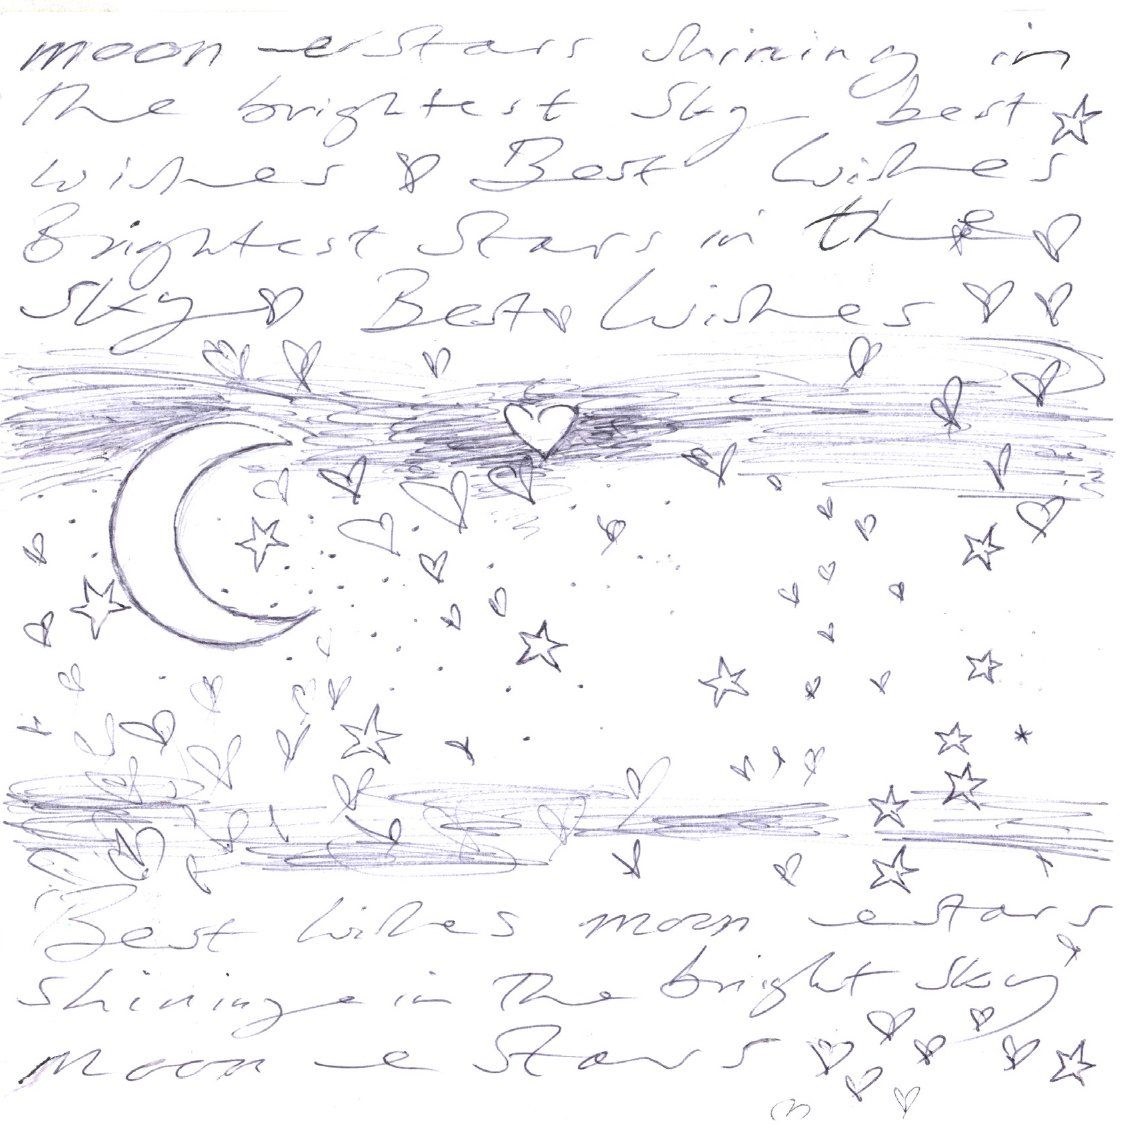 moon e stars shining in
the brightest sky best
wishes Best Wishes
Brightest Stars in the
Sky Best Wishes
Best wishes moon e stars
shining e in The bright sky
Moon e Stars